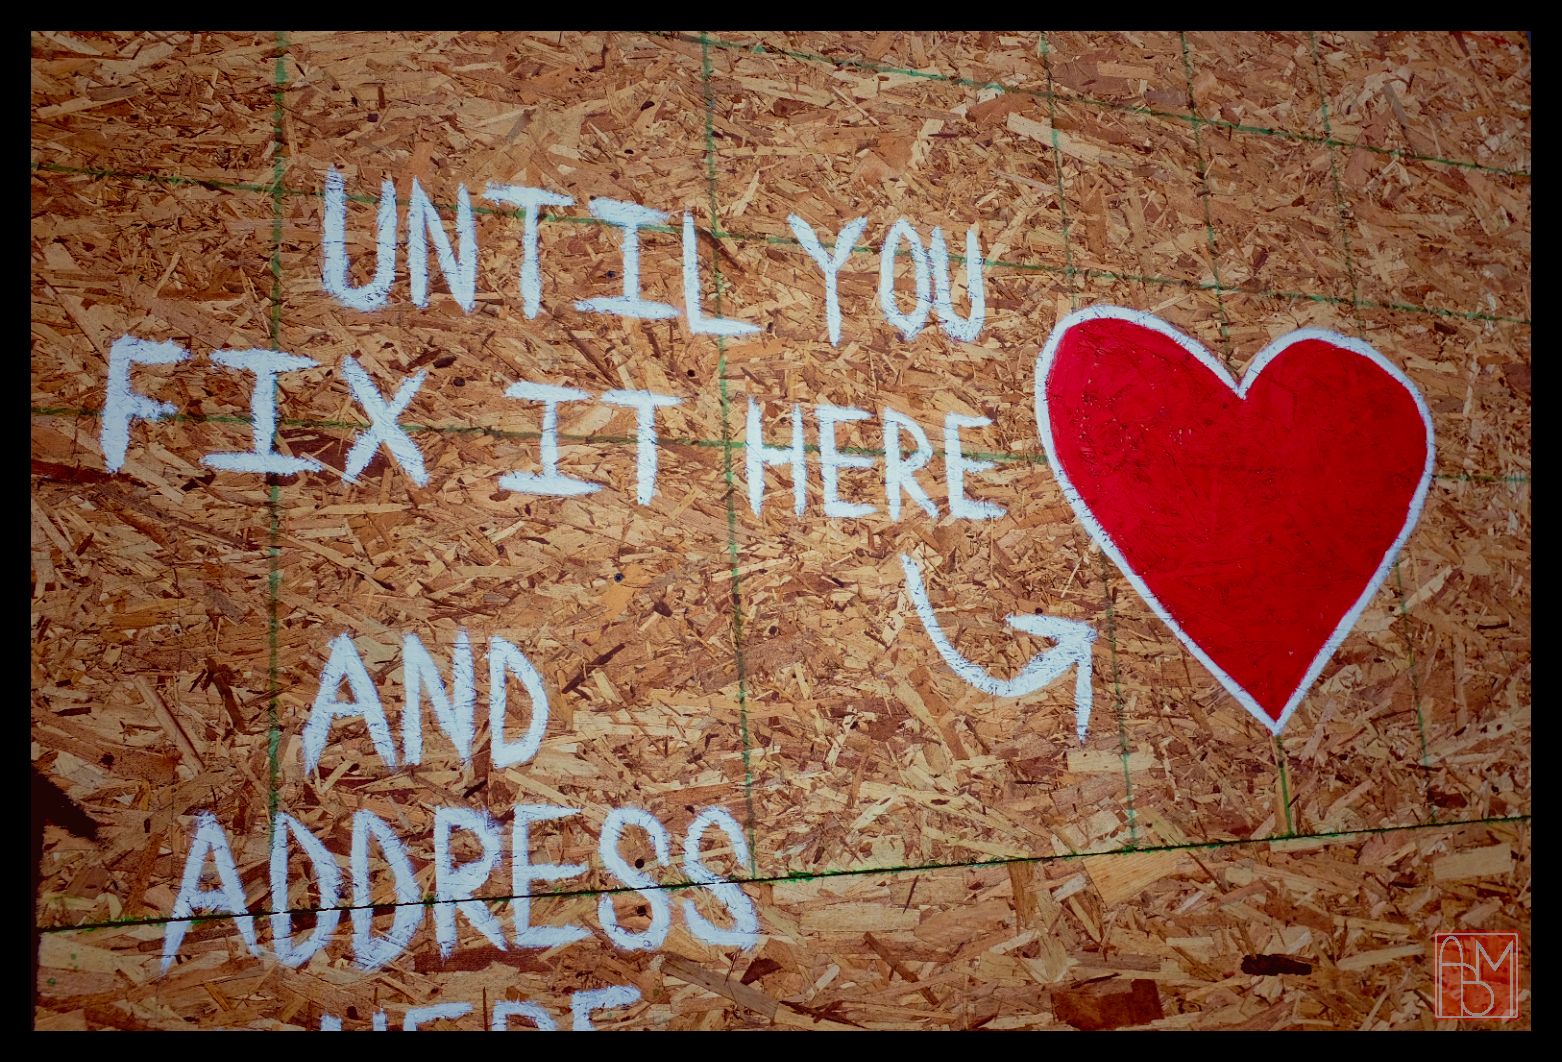 UNTIL YOU
FIX IT HERE
AND
ADDRESS
HERE